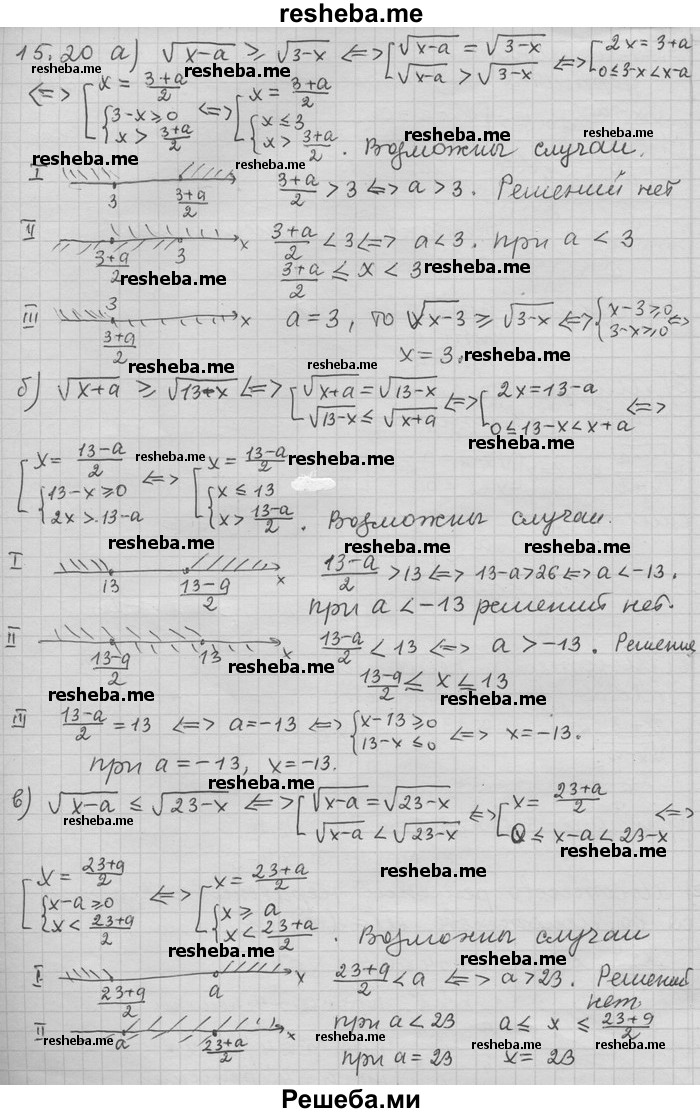 resheba.me
15.20 а) √(x-a) ≥ √(3-x) <=> [√(x-a) = √(3-x); √(x-a) > √(3-x) <=> [2x = 3+a; 0≤3-x<x-a
resheba.me resheba.me resheba.me
<=> [x = (3+a)/2; {3-x≥0; x > (3+a)/2 <=> [x = (3+a)/2; {x≤3; x > (3+a)/2. Возможны случаи.
resheba.me resheba.me
I 3 (3+a)/2 x (3+a)/2 > 3 <=> a > 3. Решений нет
II (3+a)/2 3 x (3+a)/2 < 3 <=> a < 3. при a < 3
resheba.me (3+a)/2 ≤ x < 3 resheba.me
III 3 (3+a)/2 x a = 3, то √(x-3) ≥ √(3-x) <=> {x-3≥0; 3-x≥0 <=>
resheba.me x = 3. resheba.me
б) √(x+a) ≥ √(13-x) <=> [√(x+a) = √(13-x); √(13-x) ≤ √(x+a) <=> [2x = 13-a; 0≤13-x<x+a <=>
resheba.me resheba.me resheba.me
[x = (13-a)/2; {13-x≥0; 2x > 13-a <=> [x = (13-a)/2; {x ≤ 13; x > (13-a)/2. Возможны случаи.
resheba.me resheba.me
resheba.me resheba.me
I 13 (13-a)/2 x (13-a)/2 > 13 <=> 13-a>26 <=> a<-13.
resheba.me при a < -13 решений нет.
II (13-a)/2 13 x (13-a)/2 < 13 <=> a > -13. Решение
resheba.me (13-a)/2 ≤ x ≤ 13
resheba.me resheba.me
III (13-a)/2 = 13 <=> a = -13 <=> {x-13≥0; 13-x≤0 <=> x = -13.
при a = -13, x = -13.
resheba.me resheba.me
в) √(x-a) ≤ √(23-x) <=> [√(x-a) = √(23-x); √(x-a) < √(23-x) <=> [x = (23+a)/2; 0 ≤ x-a < 23-x <=>
resheba.me resheba.me
resheba.me
[x = (23+a)/2; {x-a≥0; x < (23+a)/2 <=> [x = (23+a)/2; {x ≥ a; x < (23+a)/2. Возможны случаи
resheba.me resheba.me
I (23+a)/2 a x (23+a)/2 < a <=> a > 23. Решений нет
resheba.me
II a (23+a)/2 x при a < 23 a ≤ x ≤ (23+a)/2
resheba.me resheba.me resheba.me resheba.me
при a = 23 x = 23
Решеба.ми